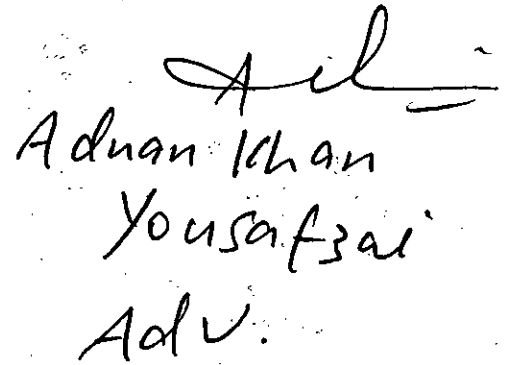 Adnan Khan
Yousafzai
Adv.